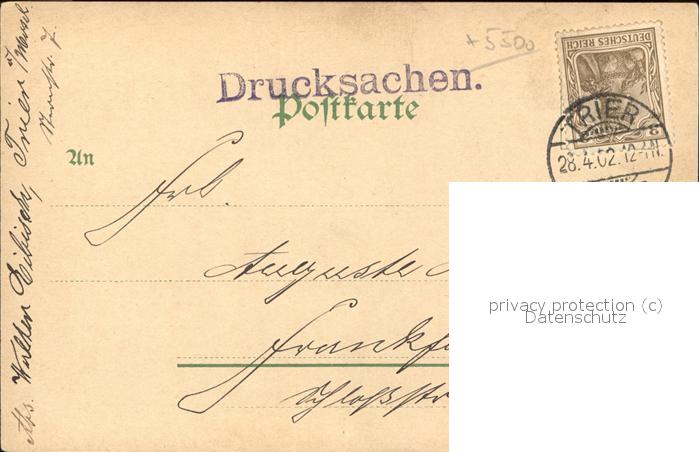 + 5500
DEUTSCHES REICH
Drucksachen.
Postkarte
TRIER
28.4.02.12-1N.
An
Frl.
Auguste
Frankf
Schloßstr
privacy protection (c)
Datenschutz
Abs. Walther Eibisch, Trier / Mosel.